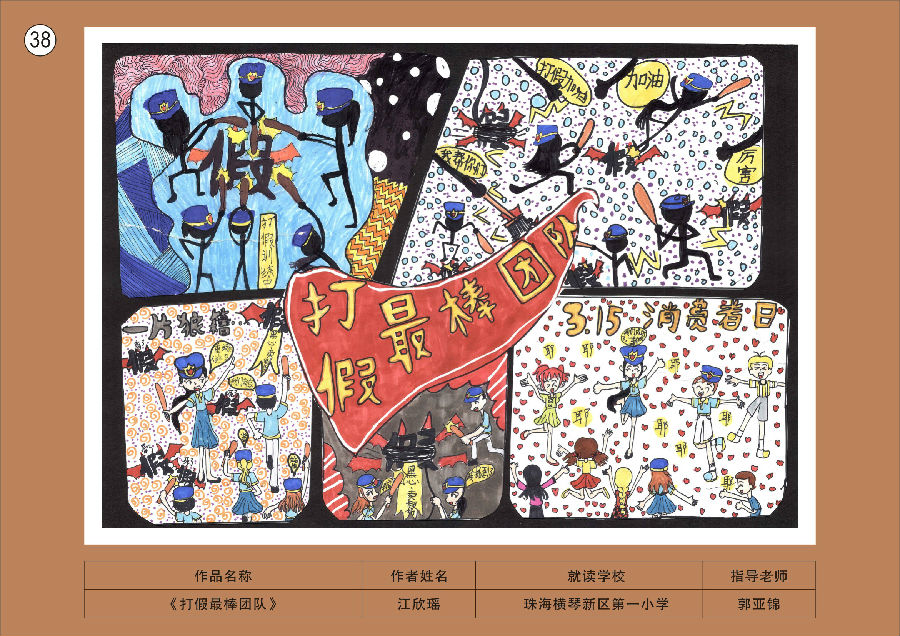 38
假
打假训练营
打假加油
加油
假
我帮你们
假
厉害
假
假
打假最棒团队
一片狼藉
假
假
假
假
黑心
假
黑心
3.15 消费者日
耶
耶
耶
耶
耶
耶
耶
耶
作品名称 作者姓名 就读学校 指导老师
《打假最棒团队》 江欣瑶 珠海横琴新区第一小学 郭亚锦